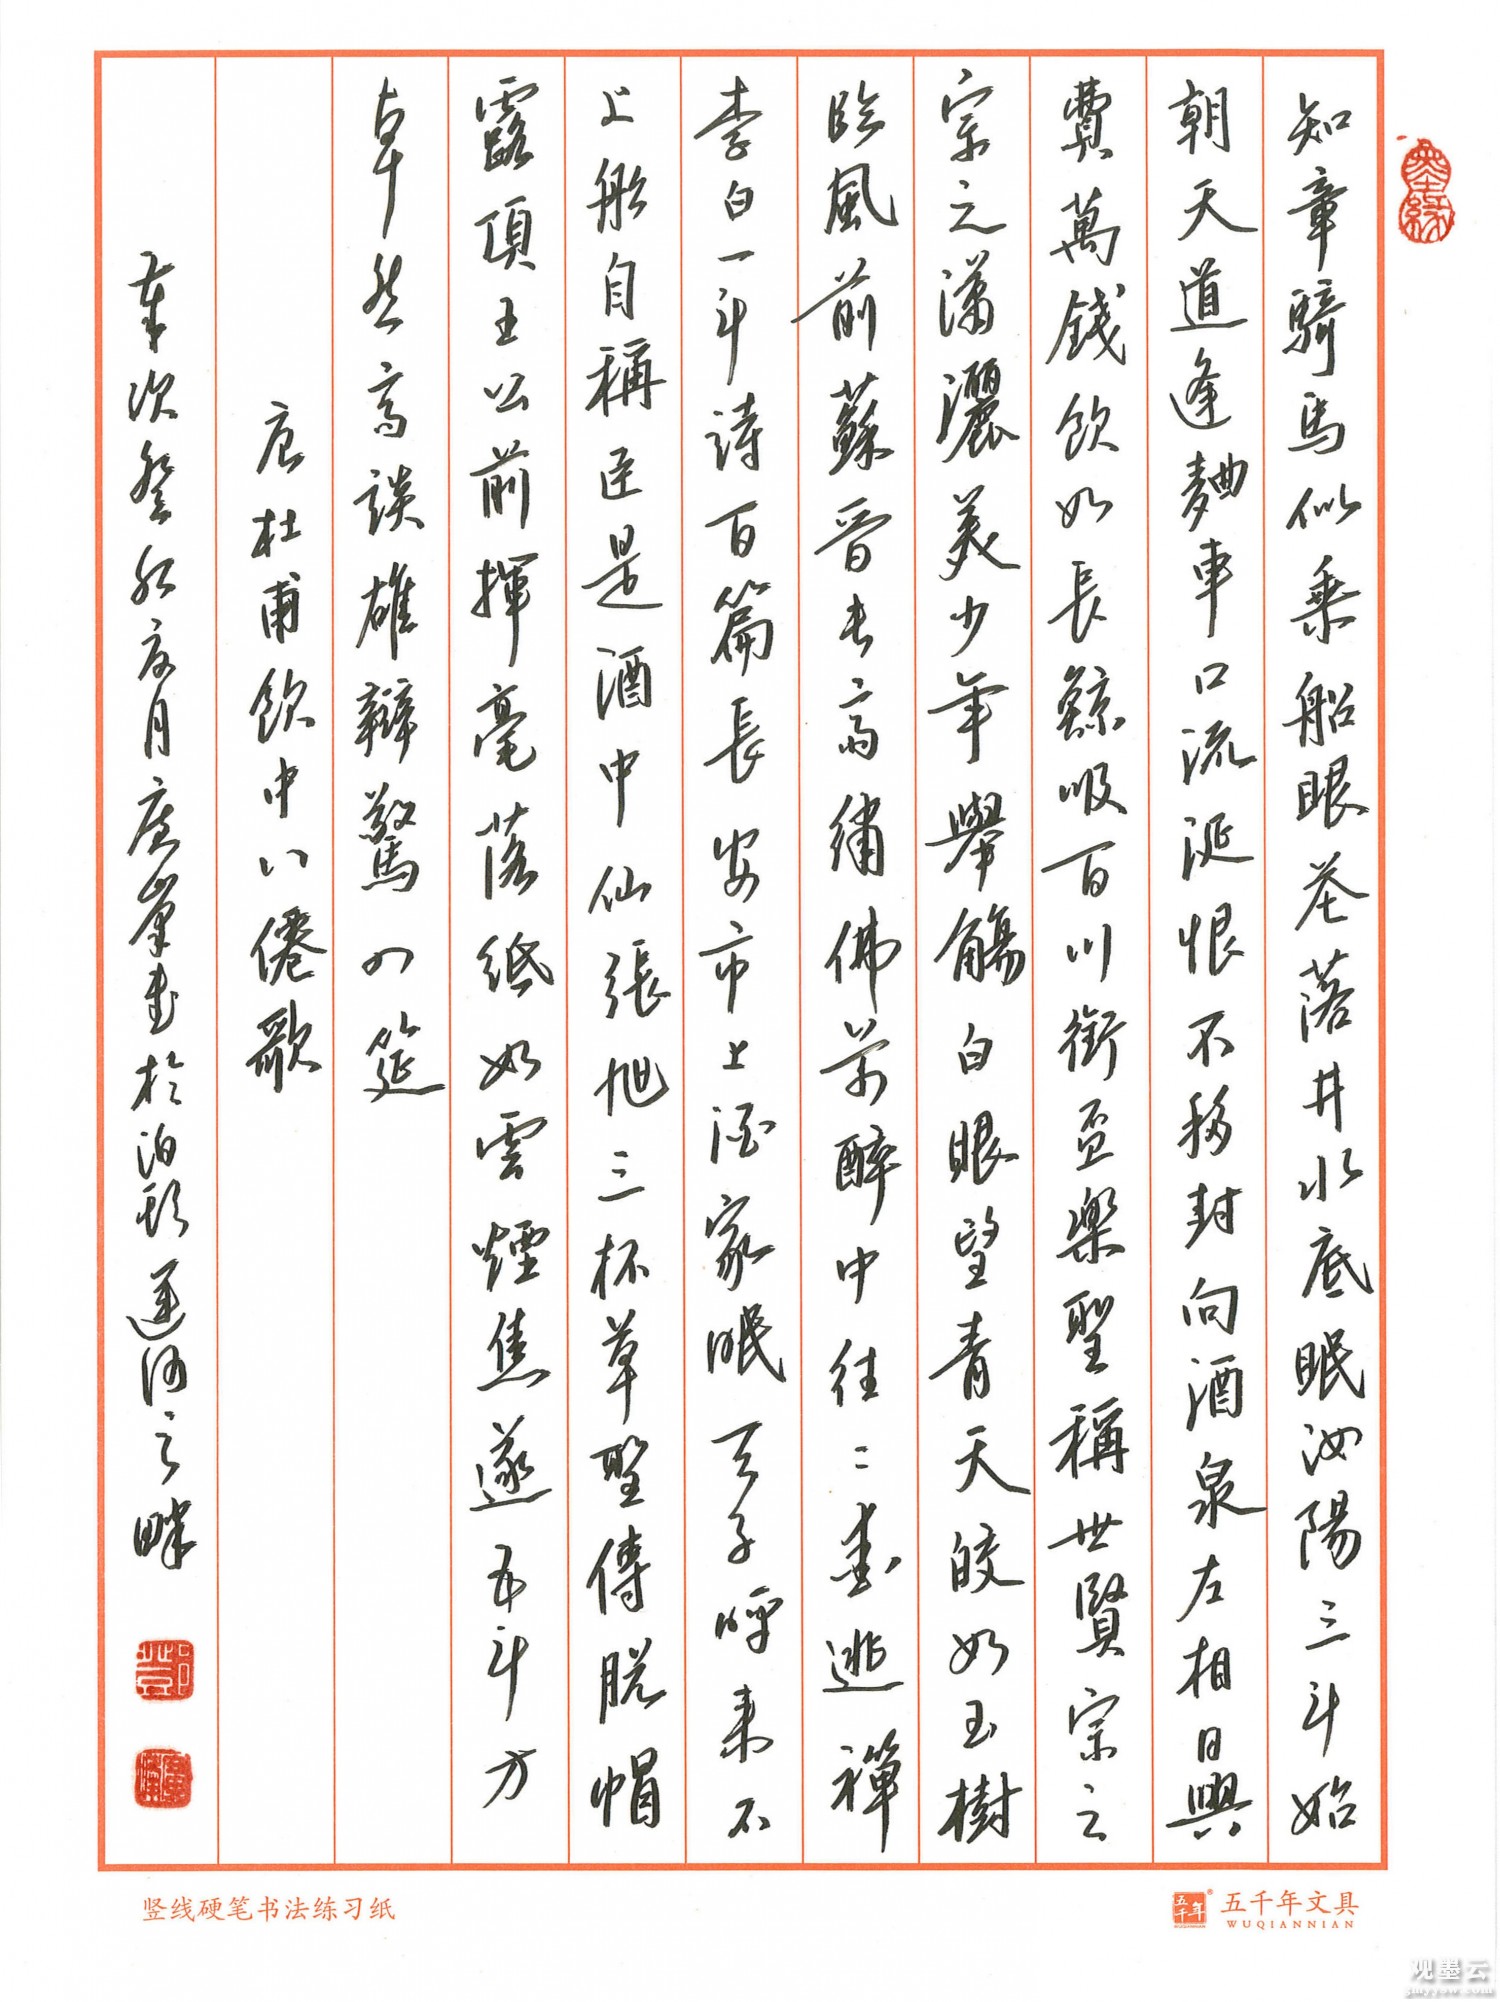 知章騎馬似乘船眼花落井水底眠汝陽三斗始
朝天道逢麯車口流涎恨不移封向酒泉左相日興
費萬錢飲如長鯨吸百川銜盃樂聖稱世賢宗之
宗之瀟灑美少年舉觴白眼望青天皎如玉樹
臨風前蘇晉長齋繡佛前醉中往〻愛逃禪
李白一斗詩百篇長安市上酒家眠天子呼來不
上船自稱臣是酒中仙張旭三杯草聖傳脫帽
露頂王公前揮毫落紙如雲煙焦遂五斗方
卓然高談雄辯驚四筵
唐杜甫飲中八僊歌
歲次癸卯夏月廣峯書於泊頭運河之畔
竖线硬笔书法练习纸
五千年文具
WUQIANNIAN
观墨云